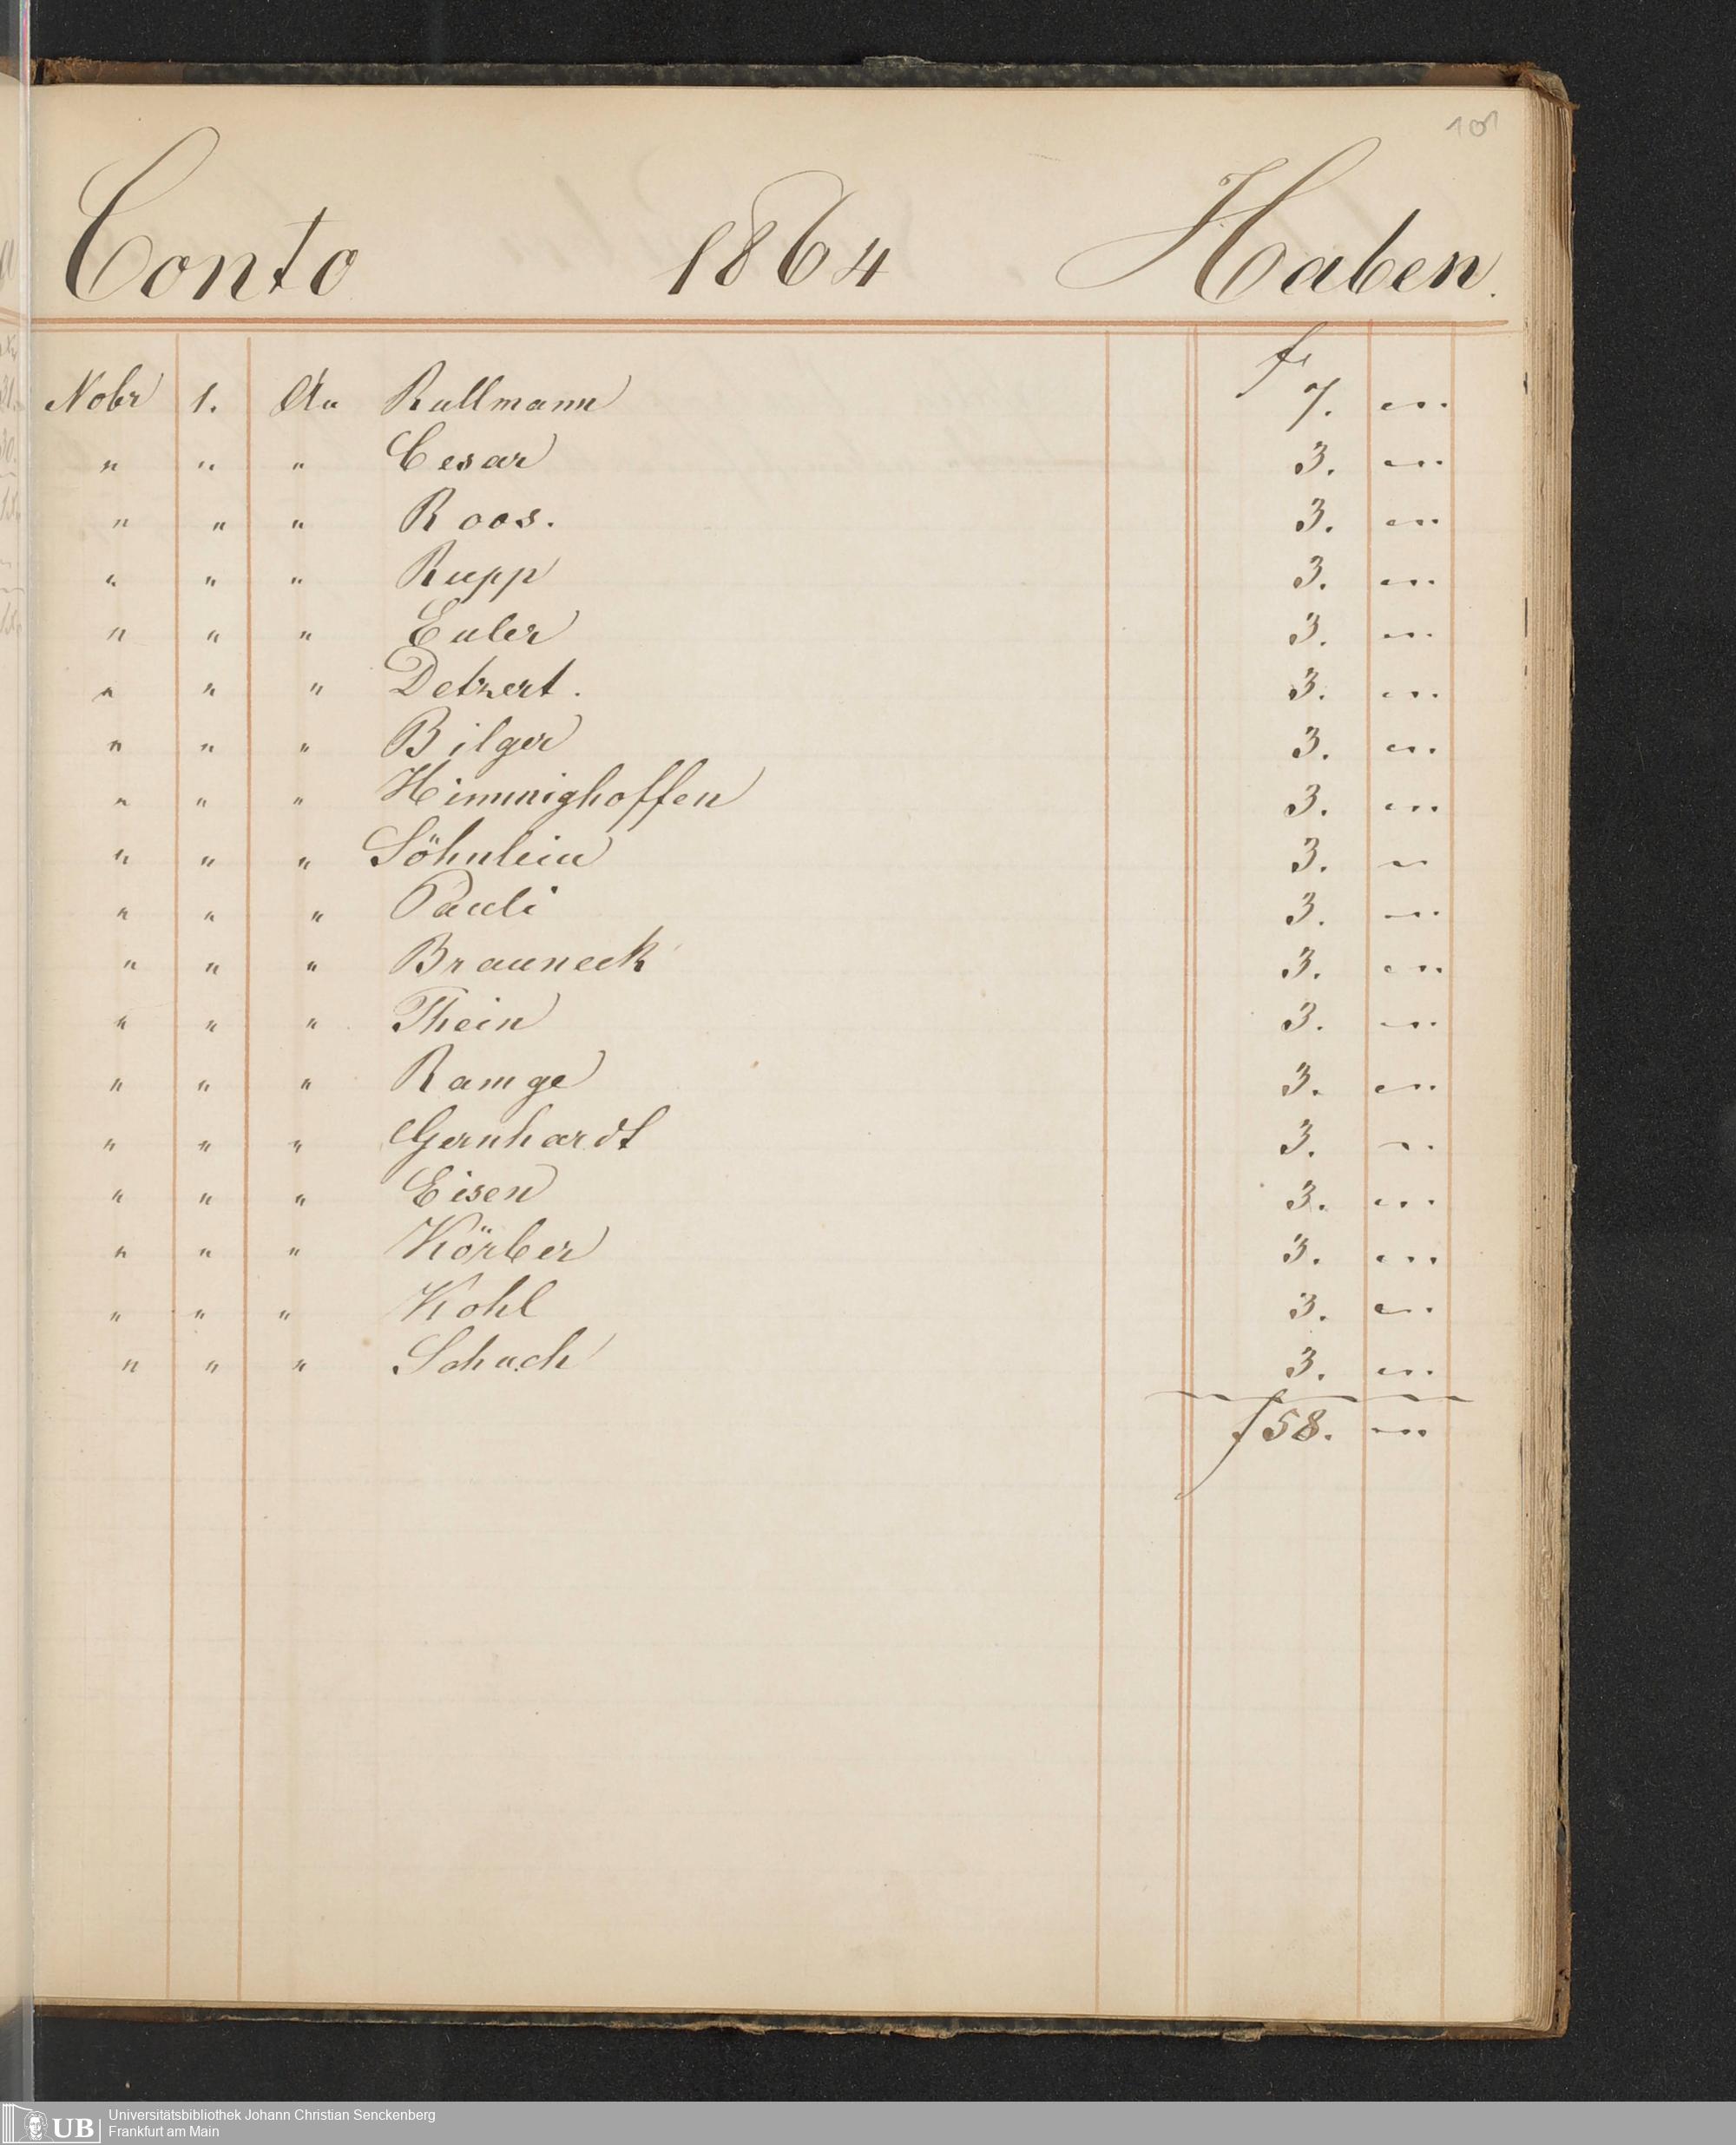 101
Conto 1864 Haben.
f
Nobr 1. An Rullmann 7. „
„ „ „ Cesar 3. „
„ „ „ Roos. 3. „
„ „ „ Rupp 3. „
„ „ „ Euler 3. „
„ „ „ Detzert. 3. „
„ „ „ Bilger 3. „
„ „ „ Himmighoffen 3. „
„ „ „ Söhnlein 3. „
„ „ „ Pauli 3. „
„ „ „ Brauneck 3. „
„ „ „ Thein 3. „
„ „ „ Ramge 3. „
„ „ „ Gernhardt 3. „
„ „ „ Eisen 3. „
„ „ „ Körber 3. „
„ „ „ Kohl 3. „
„ „ „ Schuch 3. „
f 58. „
UB Universitätsbibliothek Johann Christian Senckenberg
Frankfurt am Main